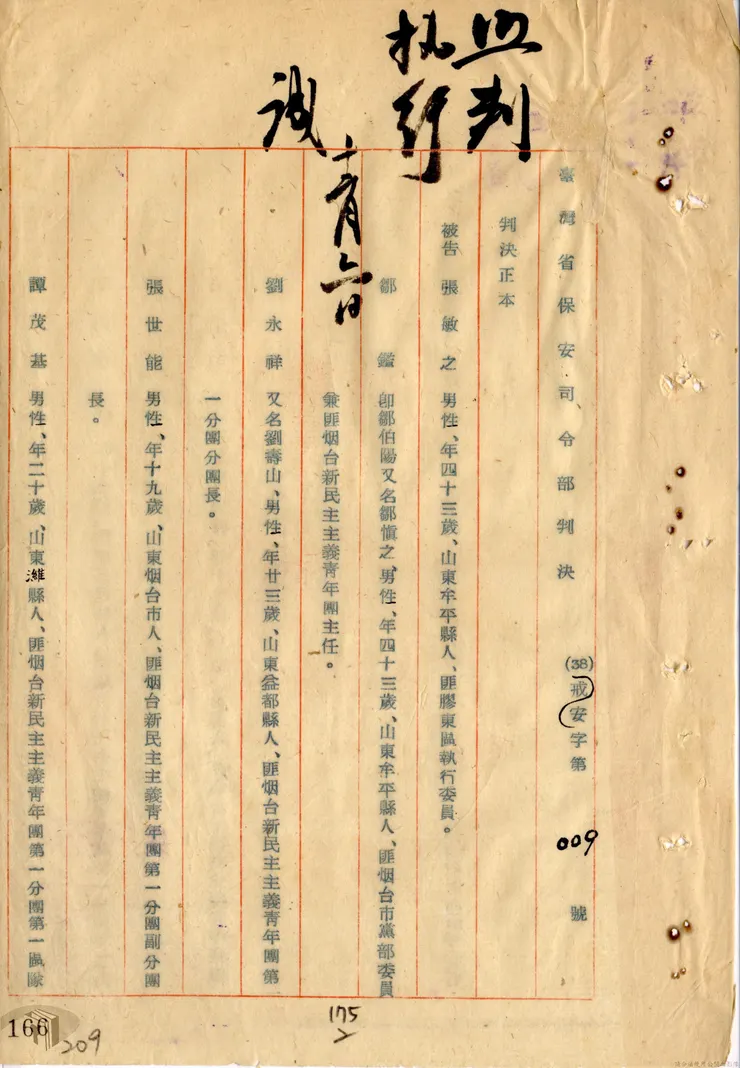 照判
执行
誠
十二月六日
臺灣省保安司令部判決 (38)戒安字第 009 號
判決正本
被告 張敏之 男性、年四十三歲、山東牟平縣人、匪膠東區執行委員。
鄒鑑 卽鄒伯陽又名鄒愼之、男性、年四十三歲、山東牟平縣人、匪烟台市黨部委員
兼匪烟台新民主主義靑年團主任。
劉永祥 又名劉壽山、男性、年廿三歲、山東益都縣人、匪烟台新民主主義靑年團第
一分團分團長。
張世能 男性、年十九歲、山東烟台市人、匪烟台新民主主義靑年團第一分團副分團
長。
譚茂基 男性、年二十歲、山東濰縣人、匪烟台新民主主義靑年團第一分團第一區隊
175
2
166
209